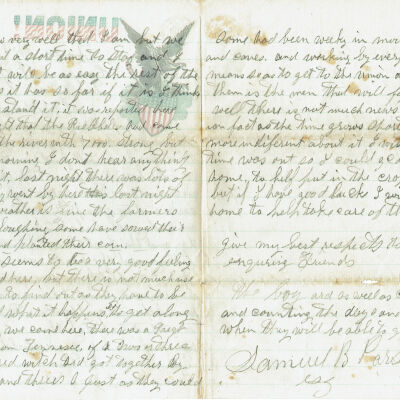 UNION!
is very well then I am but we
a short time to stay and I
it will be as easy the rest of the
as it has so far if it is I think
stand it, it was reported here
night that the Rebels had come
the river with 7000 Strong but
morning I dont hear anything
it, last night there was lots of
went by here this last night
weather is fine the farmers
ploughing, Some have sowed their
and planted their corn,
seems to be a very good feeling
here, but there is not much use
to find out as they have to be
what it happens, We get along
we came here, there was a Regt
from Tennessee, of Two or three
hundred witch did get together By
and threes & just as they could
Some had been weeks in
and caves, and working by every
means so as to get to the union
them is the men that will
well there is not much news
on fact as the time grows short
more indiferent about it I
time was out so I could
home, to help put in the crop
but if I have good luck I
home to help take care of the
give my best respects to
enquiring Friends
The boys are as well as
and counting the days and
when they will be able to
Samuel B
esq